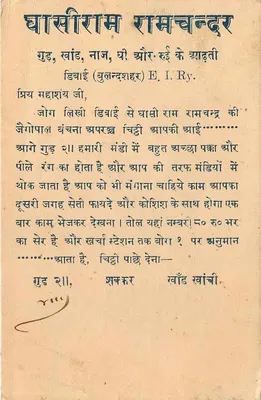 घासीराम रामचन्दर
गुड़, खांड, नाज, घी और रुई के आढ़ती
डिबाई (बुलन्दशहर) E. I. Ry.
प्रिय महाशय जी,
जोग लिखी डिबाई से घासी राम रामचन्द्र की
जैगोपाल बंचना अपरञ्च चिट्ठी आपकी आई
आगे गुड़ २॥ हमारी मंडी में बहुत अच्छा पक्का और
पीले रंग का होता है और आप की तरफ मंडियों में
थोक जाता है आप को भी मंगाना चाहिये काम आपका
दूसरी जगह सेती फायदे और कोशिश के साथ होगा एक
बार काम भेजकर देखना। तोल यहां नम्बरी ८० रु० भर
का सेर है और खर्चा स्टेशन तक बोरा १ पर अनुमान
आता है, चिट्ठी पाछे देना—
गुड़ २॥, शक्कर खाँड खांची.